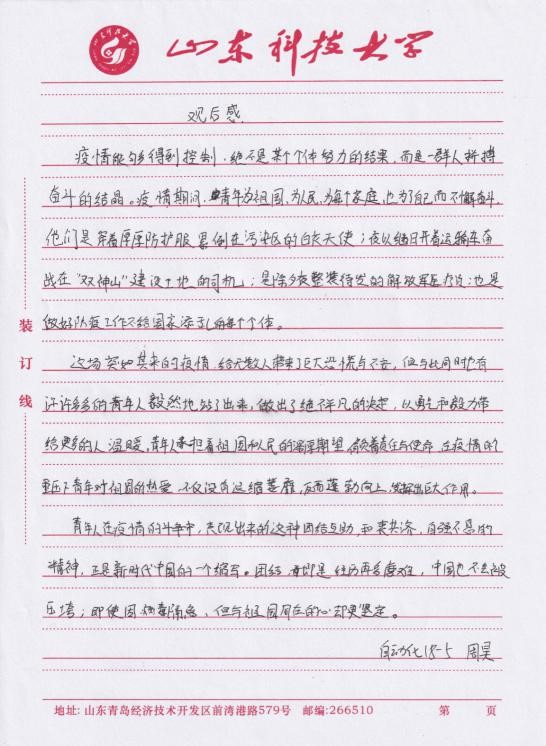 山东科技大学
山东科技大学
观后感
疫情能够得到控制，绝不是某个个体努力的结果，而是一群人拼搏
奋斗的结晶。疫情期间，青年为祖国，为人民，为每个家庭，也为了自己而不懈奋斗，
他们是穿着厚厚防护服累倒在污染区的白衣天使；夜以继日开着运输车奋
战在“双神山”建设工地的司机；是除夕夜整装待发的解放军医疗员；也是
做好防疫工作不给国家添乱的每个个体。
这场突如其来的疫情，给无数人带来了巨大恐慌与不安，但与此同时也有
许许多多的青年人毅然地站了出来，做出了绝不平凡的决定，以勇气和毅力带
给更多的人温暖，青年人承担着祖国和人民的深厚期望，负着责任与使命，在疫情的
重压下青年对祖国的热爱，不仅没有退缩萎靡，反而蓬勃向上，发挥出巨大作用。
青年人在疫情的斗争中，表现出来的这种团结互助，和衷共济，自强不息的
精神，正是新时代中国的一个缩写。团结，即是经历再多磨难，中国也不会被
压垮；即使因病毒隔离，但与祖国同在的心却更坚定。
自动化18-5 周昊
装
订
线
地址：山东青岛经济技术开发区前湾港路579号 邮编:266510 第 页